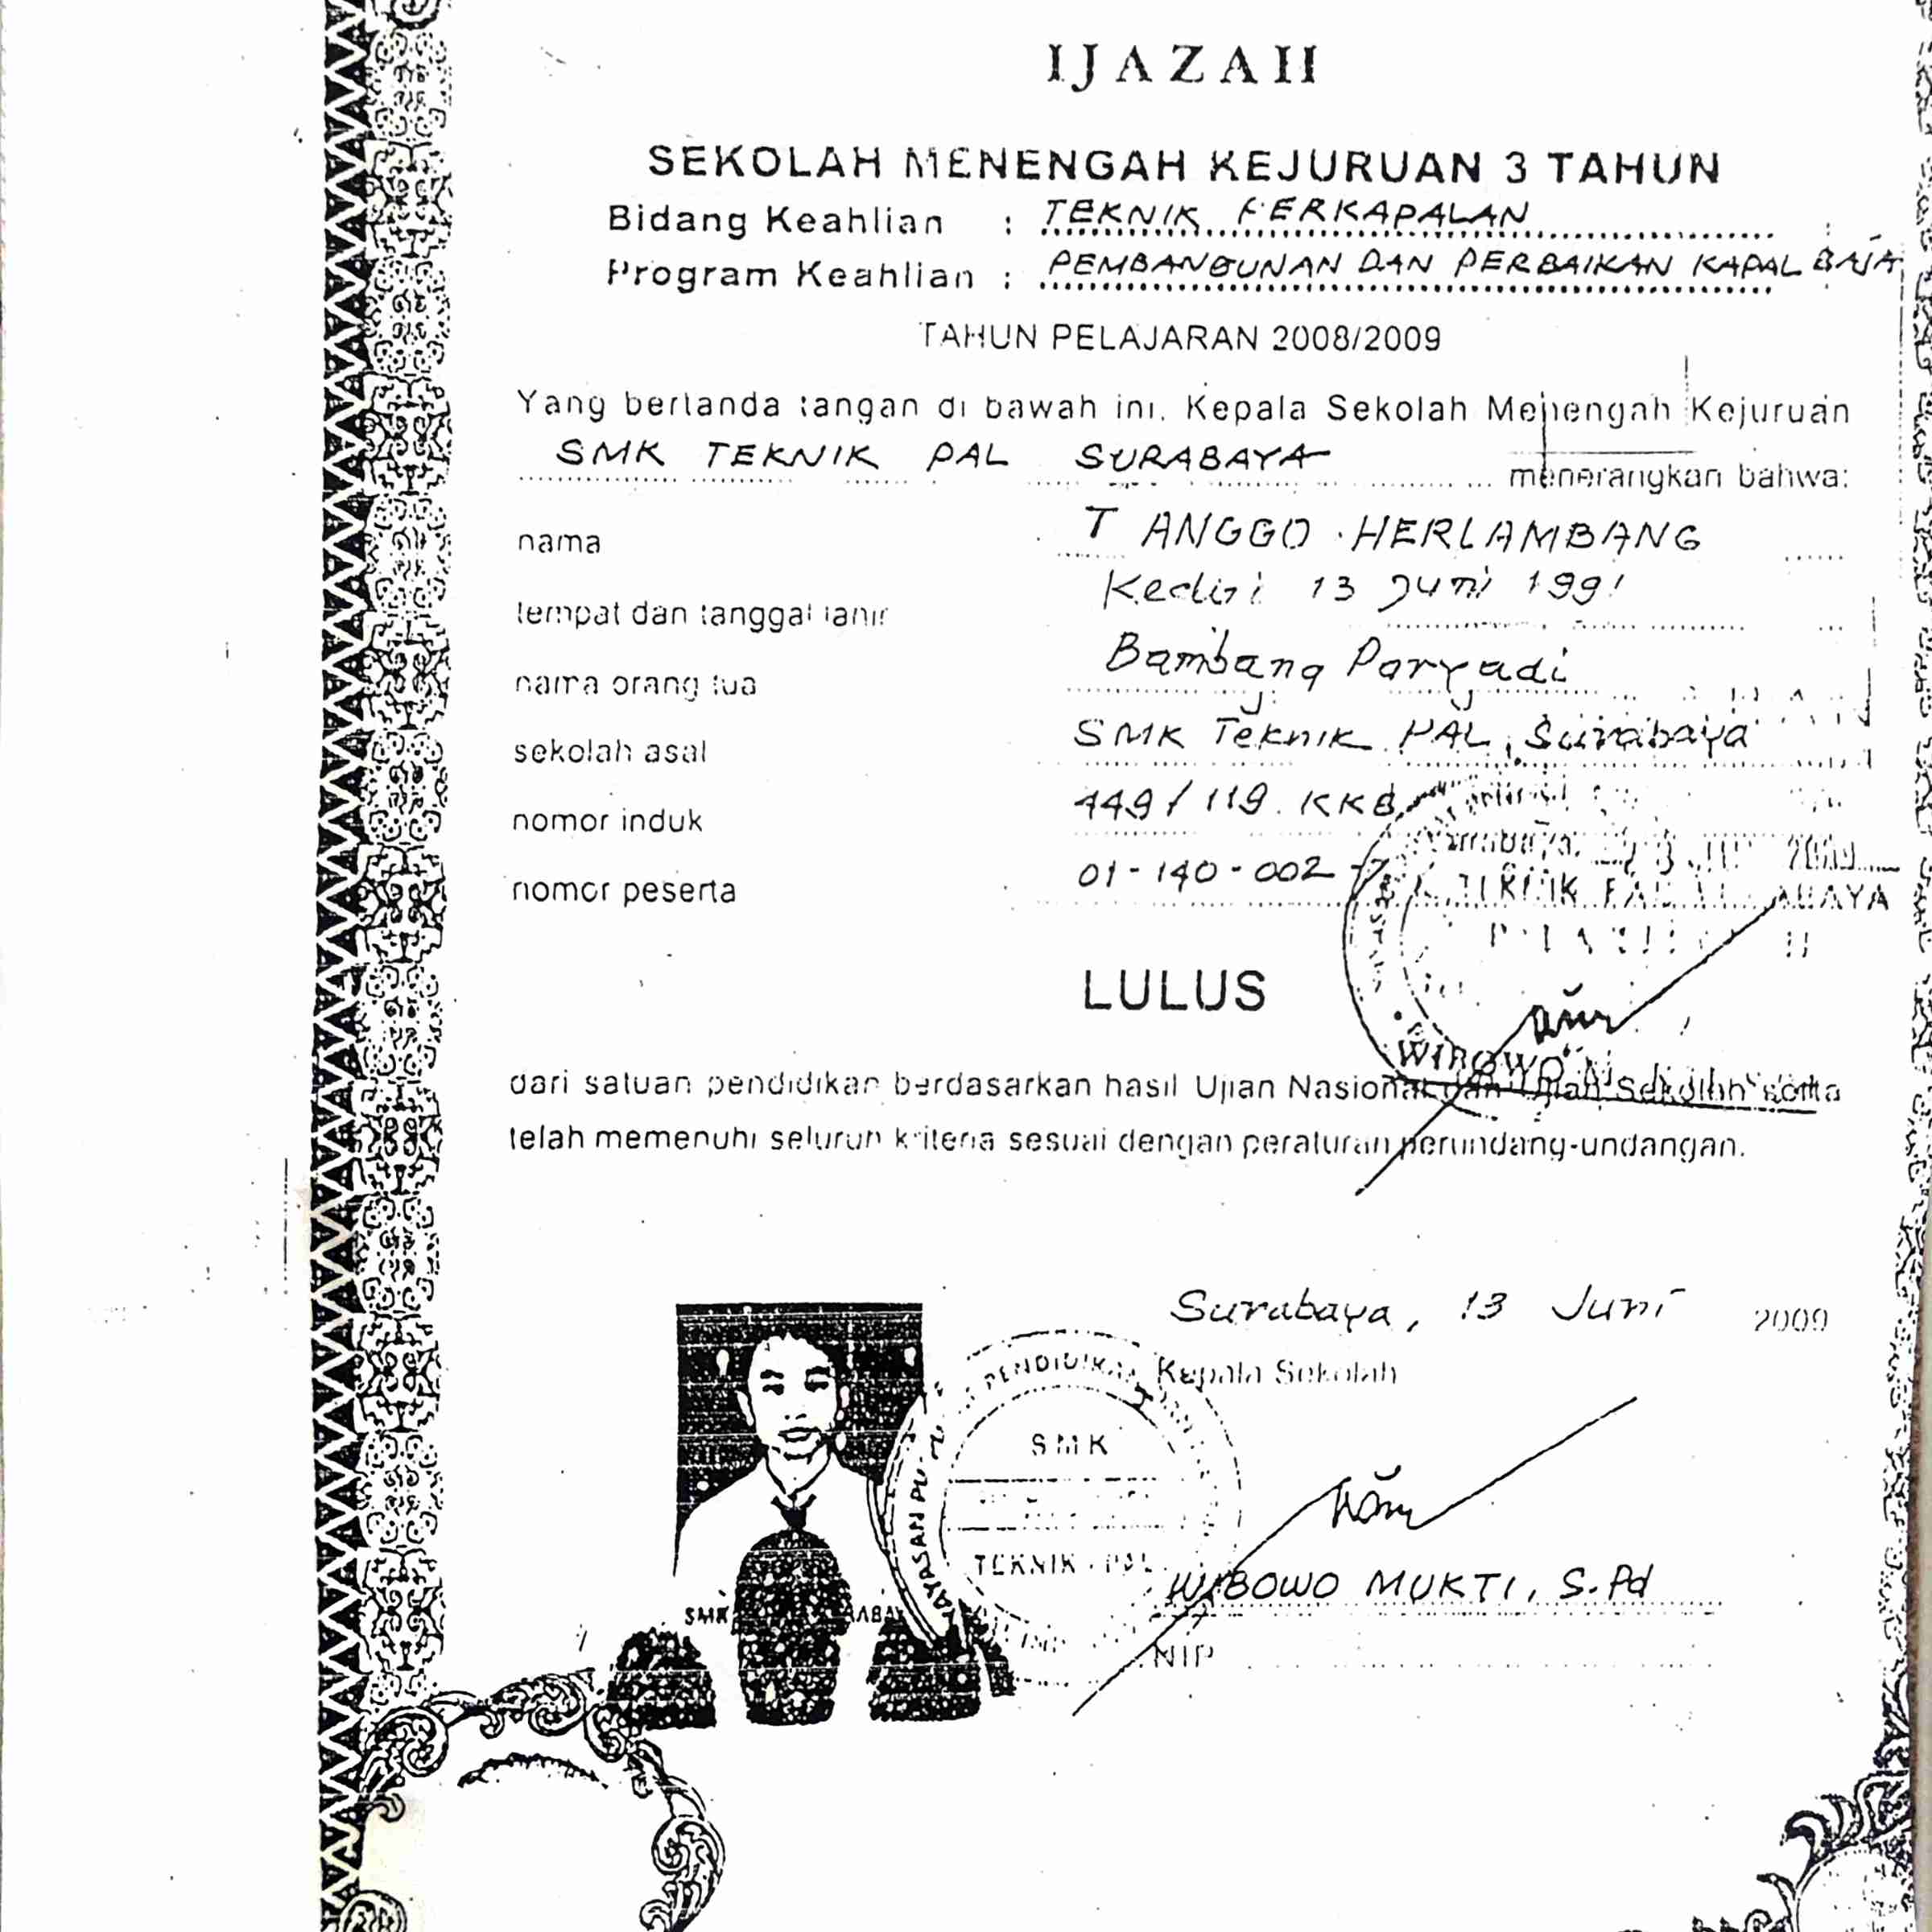 IJAZAH
SEKOLAH MENENGAH KEJURUAN 3 TAHUN
Bidang Keahlian : TEKNIK PERKAPALAN
Program Keahlian : PEMBANGUNAN DAN PERBAIKAN KAPAL BAJA
TAHUN PELAJARAN 2008/2009
Yang bertanda tangan di bawah ini, Kepala Sekolah Menengah Kejuruan
SMK TEKNIK PAL SURABAYA menerangkan bahwa:
nama T ANGGO HERLAMBANG
tempat dan tanggal lahir Kediri 13 Juni 1991
nama orang tua Bambang Paryadi
sekolah asal SMK Teknik PAL, Surabaya
nomor induk 449 / 119. KKB
nomor peserta 01-140-002-7
LULUS
WIBOWO
dari satuan pendidikan berdasarkan hasil Ujian Nasional dan Ujian Sekolah serta
telah memenuhi seluruh kriteria sesuai dengan peraturan perundang-undangan.
Surabaya, 13 Juni 2009
Kepala Sekolah
SMK
TEKNIK PAL
WIBOWO MUKTI, S.Pd
NIP